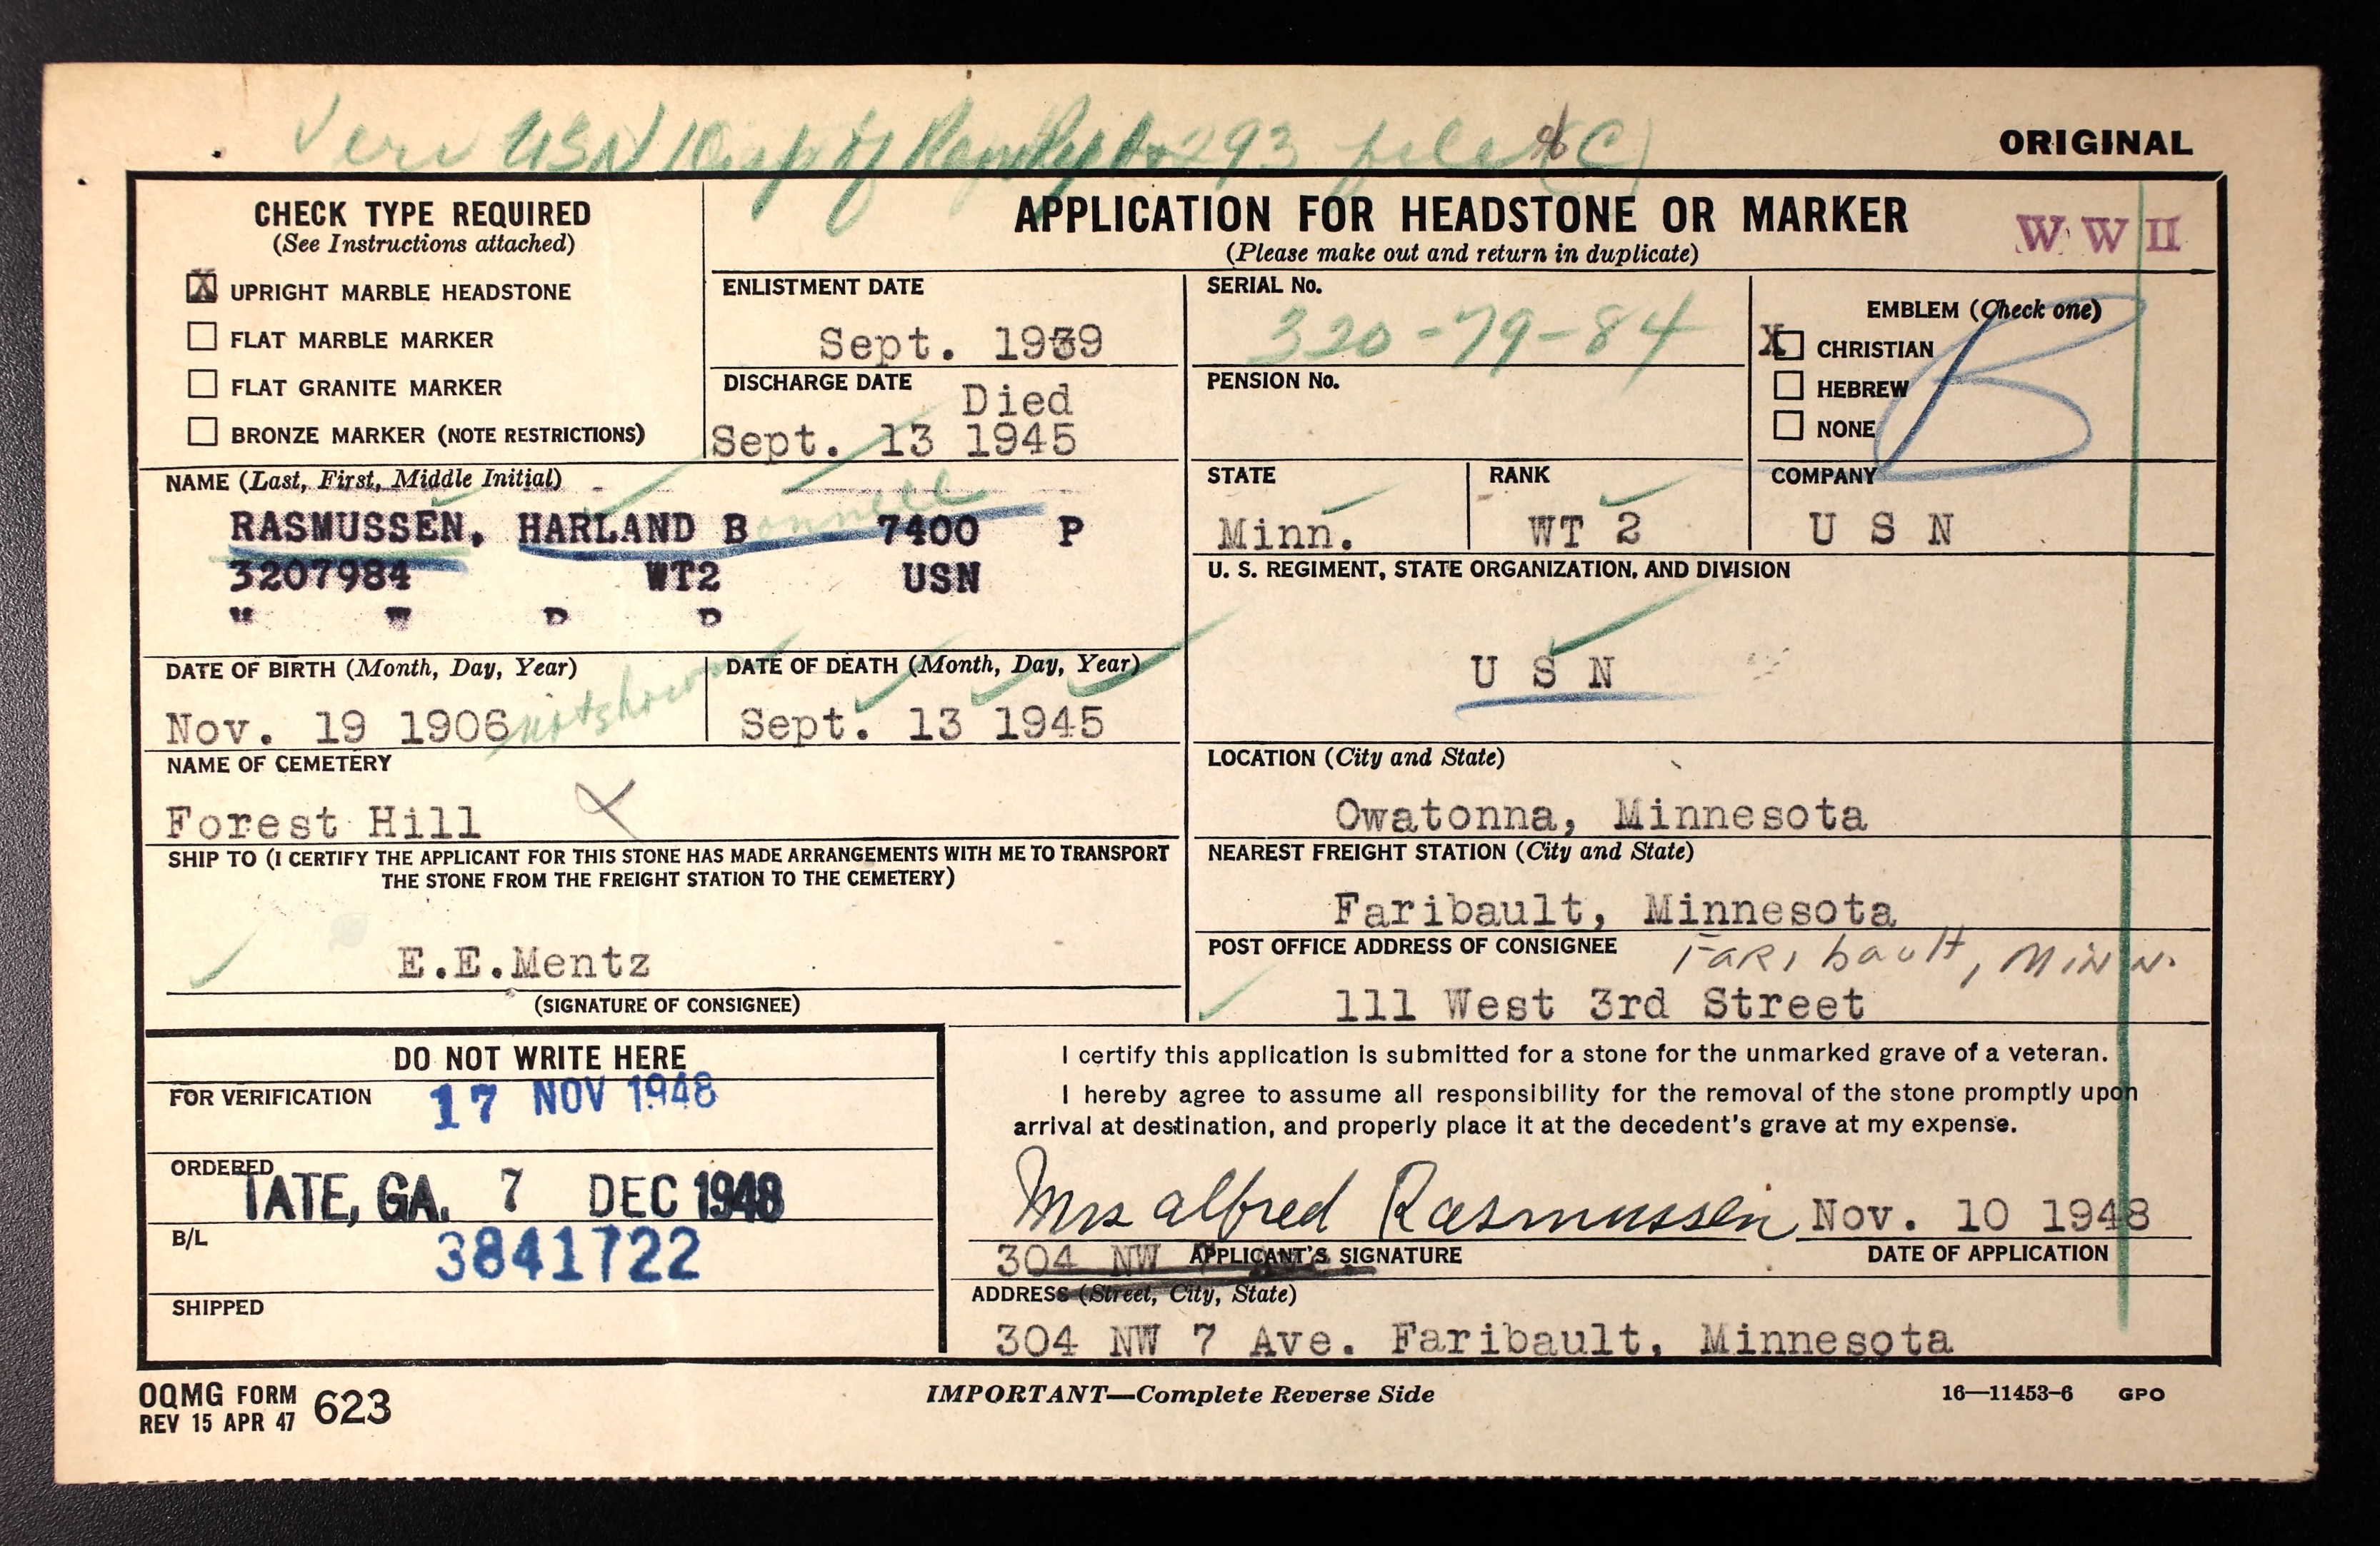 Veri USN 293 file (C)
ORIGINAL
CHECK TYPE REQUIRED
(See Instructions attached)
X UPRIGHT MARBLE HEADSTONE
FLAT MARBLE MARKER
FLAT GRANITE MARKER
BRONZE MARKER (NOTE RESTRICTIONS)
APPLICATION FOR HEADSTONE OR MARKER
(Please make out and return in duplicate)
W W II
ENLISTMENT DATE
Sept. 1939
DISCHARGE DATE
Died
Sept. 13 1945
SERIAL No.
320-79-84
PENSION No.
EMBLEM (Check one)
X CHRISTIAN
HEBREW
NONE
B
NAME (Last, First, Middle Initial)
RASMUSSEN, HARLAND Bonnell 7400 P
3207984 WT2 USN
STATE
Minn.
RANK
WT 2
COMPANY
U S N
U. S. REGIMENT, STATE ORGANIZATION, AND DIVISION
U S N
DATE OF BIRTH (Month, Day, Year)
Nov. 19 1906 not shown
DATE OF DEATH (Month, Day, Year)
Sept. 13 1945
NAME OF CEMETERY
Forest Hill
LOCATION (City and State)
Owatonna, Minnesota
SHIP TO (I CERTIFY THE APPLICANT FOR THIS STONE HAS MADE ARRANGEMENTS WITH ME TO TRANSPORT
THE STONE FROM THE FREIGHT STATION TO THE CEMETERY)
E.E.Mentz
(SIGNATURE OF CONSIGNEE)
NEAREST FREIGHT STATION (City and State)
Faribault, Minnesota
POST OFFICE ADDRESS OF CONSIGNEE
Faribault, Minn.
111 West 3rd Street
DO NOT WRITE HERE
FOR VERIFICATION
17 NOV 1948
ORDERED
TATE, GA. 7 DEC 1948
B/L
3841722
SHIPPED
I certify this application is submitted for a stone for the unmarked grave of a veteran.
I hereby agree to assume all responsibility for the removal of the stone promptly upon
arrival at destination, and properly place it at the decedent's grave at my expense.
Mrs Alfred Rasmussen Nov. 10 1948
304 NW APPLICANT'S SIGNATURE
DATE OF APPLICATION
ADDRESS (Street, City, State)
304 NW 7 Ave. Faribault, Minnesota
OQMG FORM 623
REV 15 APR 47
IMPORTANT—Complete Reverse Side
16—11453-6 GPO